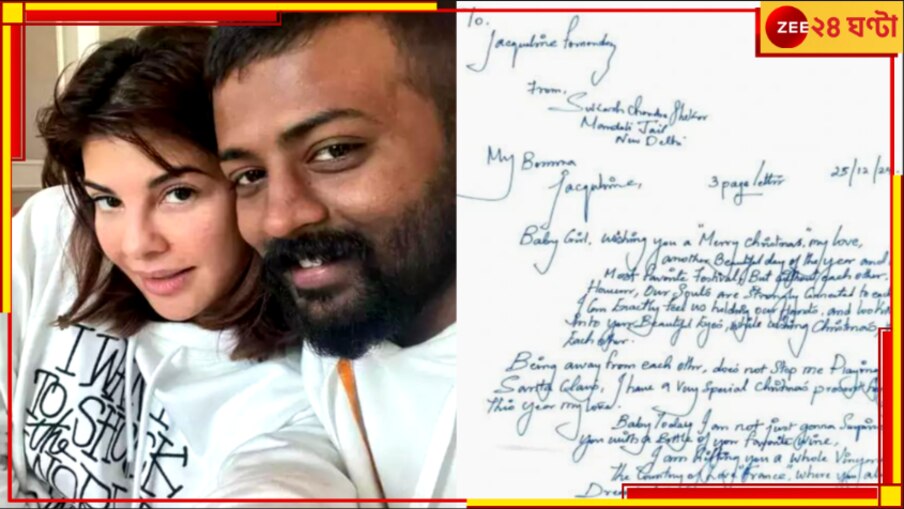 ZEE ২৪ ঘণ্টা
I WANT
TO SHOCK
the
To.
From,
Mandoli Jail
New Delhi
My Bomma
3 page letter 25/12/24
Baby Girl, Wishing you a "Merry Christmas", my love,
another Beautiful day of the year and
Most Favorite Festival, But without each other,
Our Souls are Strongly Connected to each
Can Exactly feel us holding our Hands, and
Into your Beautiful Eyes, while wishing Christmas,
Each other.
Being away from each other, does not Stop me Playing
Santa Claus, I have a Very Special Christmas present
This year my love.
Baby Today I am not just gonna
you with a Bottle of your Favorite Wine,
I am Gifting you a Whole
The Country of Love "France", Where you